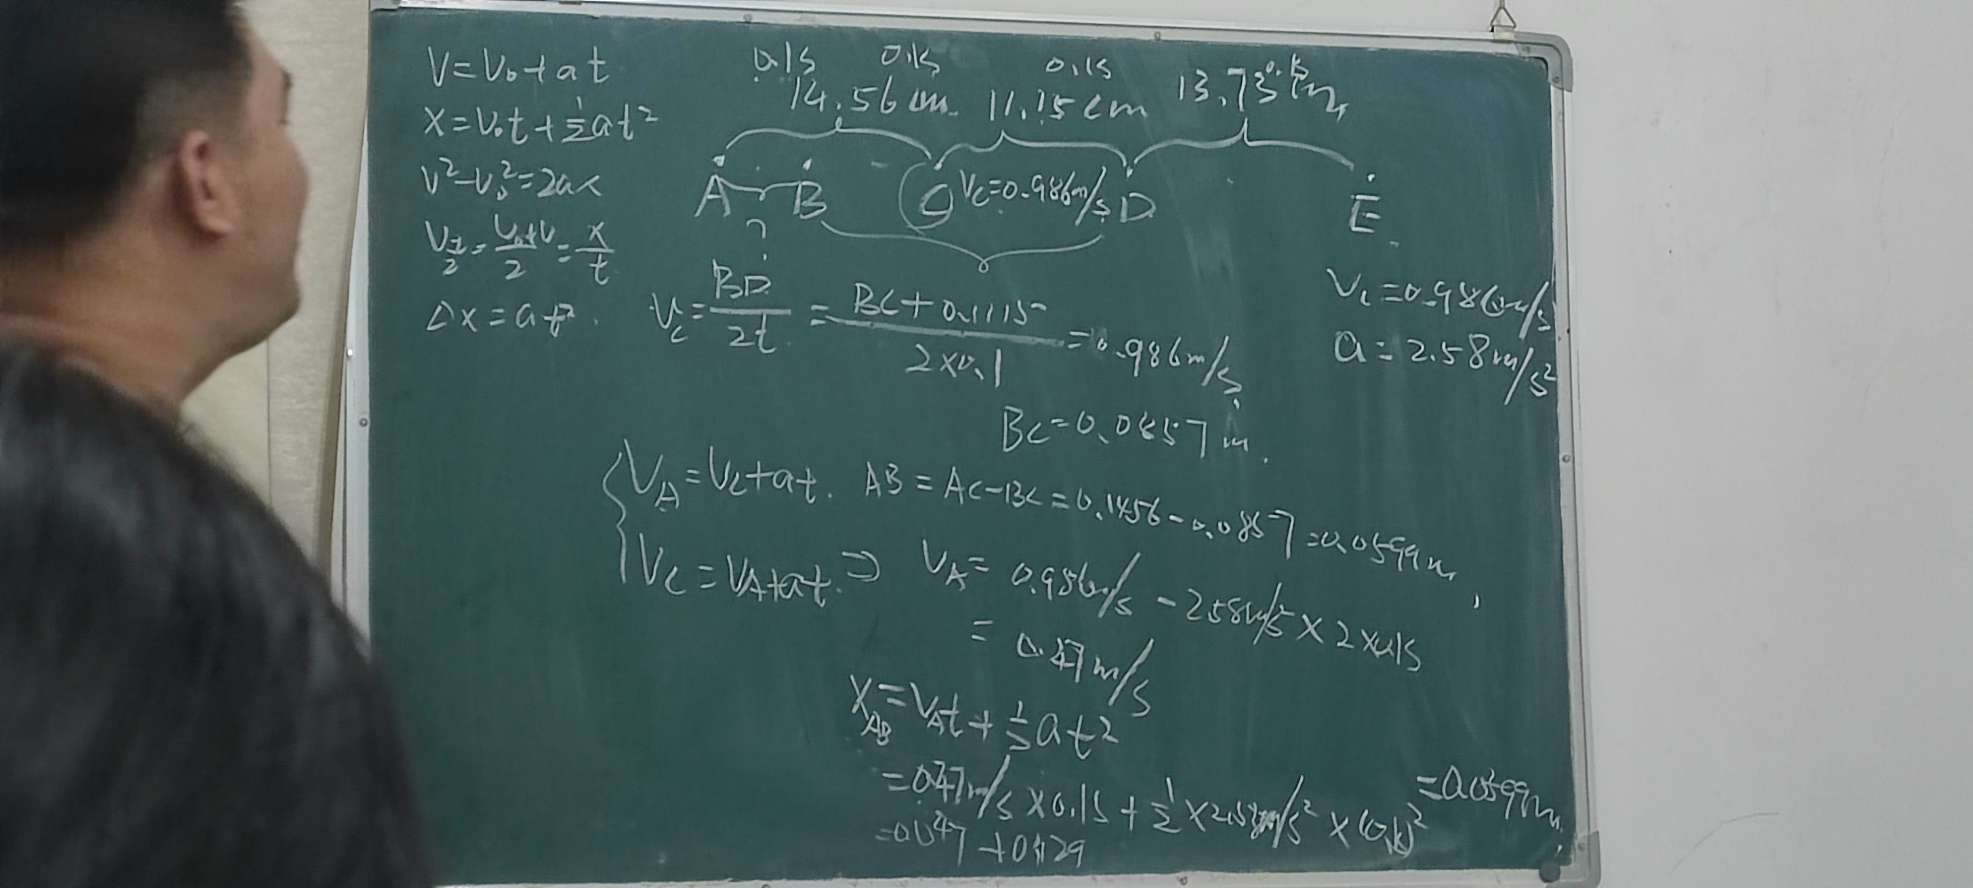 V=V₀+at
X=V₀t+½at²
V²-V₀²=2ax
V_{t/2}=(V₀+V)/2=x/t
Δx=at²
0.1s 0.1s 0.1s 0.1s
14.56cm 11.15cm 13.73cm
A B C V_C=0.986m/s D E
?
V_C=BD/2t=(BC+0.1115)/(2×0.1)=0.986m/s
V_C=0.986m/s
a=2.58m/s²
BC=0.0857m.
V_A=V_C+at. AB=AC-BC=0.1456-0.0857=0.0599m
V_C=V_A+at.⇒ V_A=0.986m/s-2.58m/s²×2×0.1s
=0.47m/s
X_AB=V_At+½at²
=0.47m/s×0.1s+½×2.58m/s²×(0.1s)²=0.0599m
=0.047+0.0129